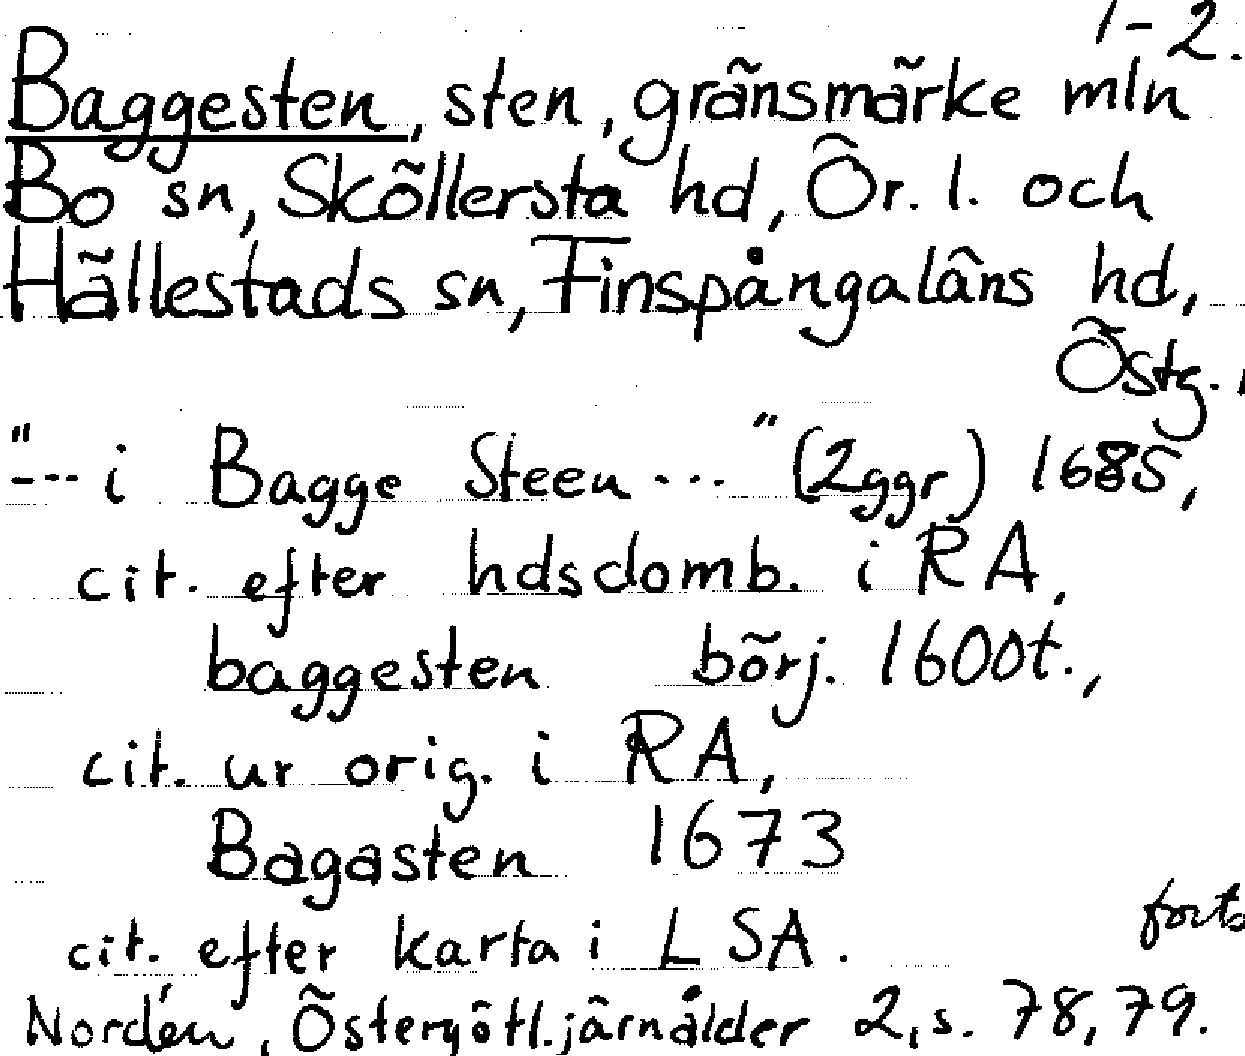 1-2.
Baggesten, sten, gränsmärke mln
Bo sn, Sköllersta hd, Ör. l. och
Hällestads sn, Finspångaläns hd,
Östg.
"--- i Bagge Steen ..." (2ggr) 1685,
cit. efter hdsdomb. i RA,
baggesten börj. 1600t.,
cit. ur orig. i RA,
Bagasten 1673
cit. efter karta i LSA.
forts
Nordén, Östergötl. järnålder 2, s. 78, 79.